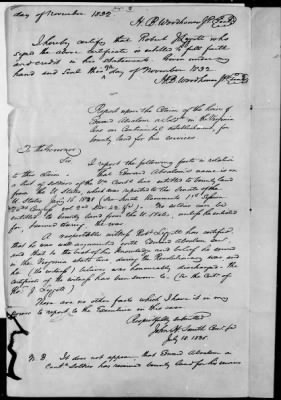 day of November 1832
H. B. Woodhouse J.P. Seal
I hereby certify that Robert Leggett who
signed the above certificate is entitled to full faith
and credit in his statements. Given under my
hand and seal this day of November 1832
H. B. Woodhouse J.P. Seal
Report upon the Claim of the heirs of
Edward Absalom a Soldr. in the Virginia
line on Continental establishment, for
bounty land for his services
To the Governor
Sir,
I report the following facts in relation
to this claim. That Edward Absalom's name is on
a list of soldiers of the Va. Contl. line entitled to bounty land
from the U. States, which was reported to the Senate of the
U. States
No soldier can be
entitled to bounty land from the U. State, unless he enlisted
for, & served during the war.
A respectable witness Robt. Leggett has certified,
that he was well acquainted with Edward Absalom decd.
and that to the best of his knowledge and belief he served
in the Virginia state line during the Revolutionary war and
he (the witness) believes was honorably discharged. The
certificate of the witness has been sworn to. (See the certf. of
Mr. J. Leggett)
There are no other facts which I have it in my
power to report to the Executive in this case.
Respectfully submitted
John H. Smith Comr. &c
July 10. 1835.
N. B. It does not appear, that Edward Absalom a
Contl. soldier has received bounty land for his services